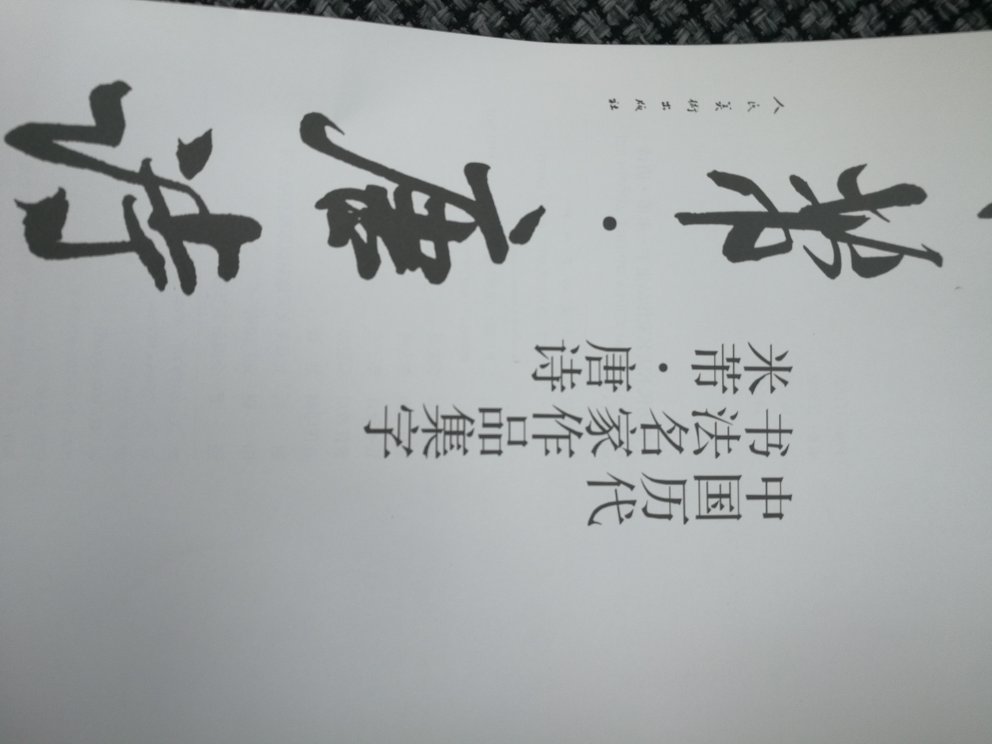 中国历代
书法名家作品集字
米芾·唐诗
芾·唐诗
人民美術出版社